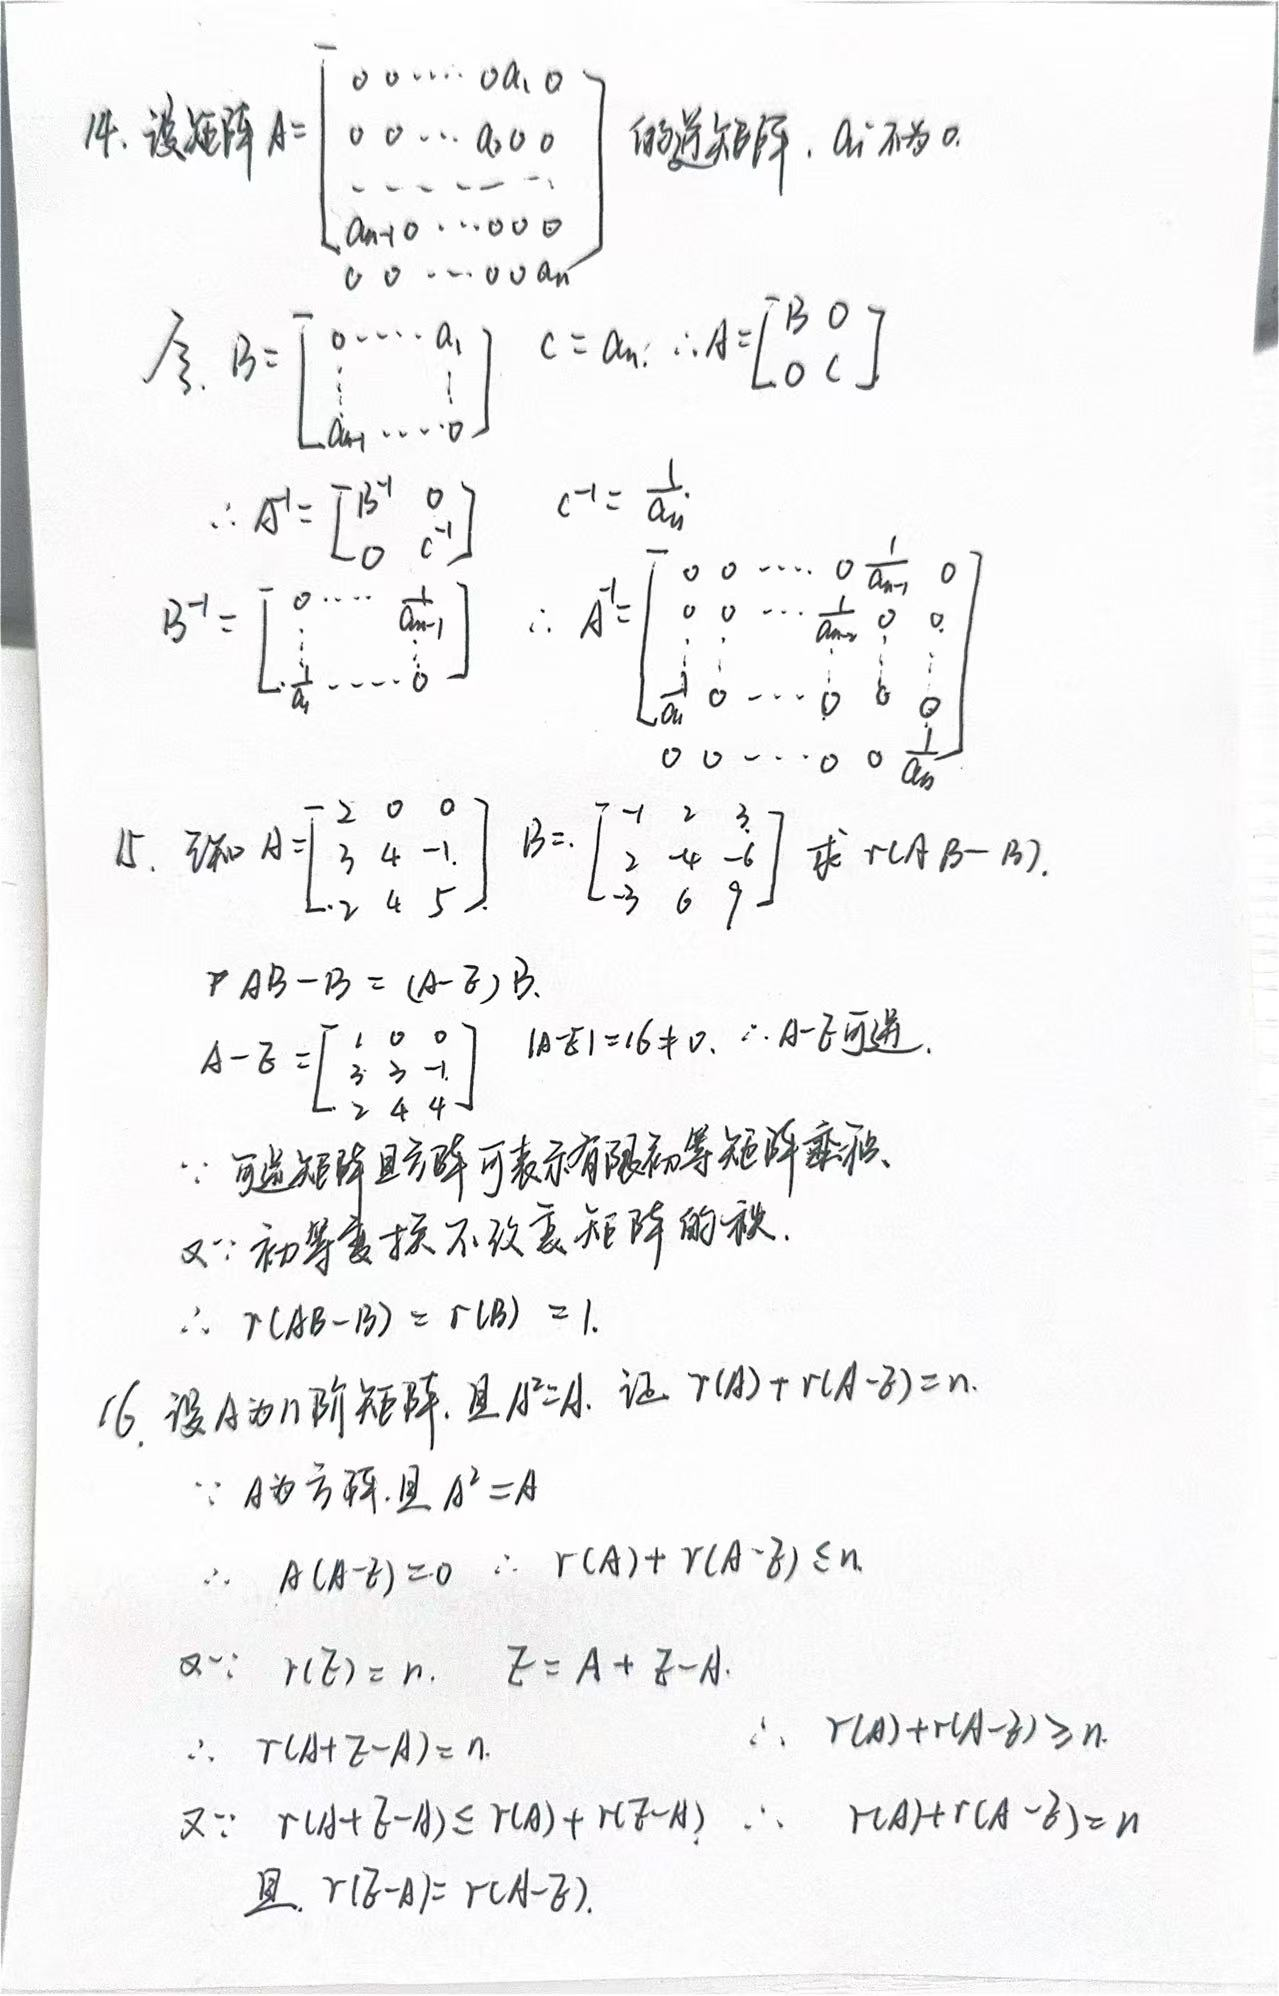 14. 设矩阵 A = [ 0 0 ⋯ 0 a₁ 0 ; 0 0 ⋯ a₂ 0 0 ; - - - - - - ; aₙ₋₁ 0 ⋯ 0 0 0 ; 0 0 ⋯ 0 0 aₙ ] 的逆矩阵. aᵢ 不为 0.
令. B = [ 0 ⋯ a₁ ; ⋮ ⋮ ; aₙ₋₁ ⋯ 0 ] C = aₙ. ∴ A = [ B 0 ; 0 C ]
∴ A⁻¹ = [ B⁻¹ 0 ; 0 C⁻¹ ] C⁻¹ = 1/aₙ.
B⁻¹ = [ 0 ⋯ 1/aₙ₋₁ ; ⋮ ⋮ ; 1/a₁ ⋯ 0 ] ∴ A⁻¹ = [ 0 0 ⋯ 0 1/aₙ₋₁ 0 ; 0 0 ⋯ 1/aₙ₋₂ 0 0 ; ⋮ ⋮ ⋮ ⋮ ⋮ ; 1/a₁ 0 ⋯ 0 0 0 ; 0 0 ⋯ 0 0 1/aₙ ]
15. 已知 A = [ 2 0 0 ; 3 4 -1 ; 2 4 5 ] B = [ -1 2 3 ; 2 -4 -6 ; -3 6 9 ] 求 r(AB-B).
AB-B = (A-E)B.
A-E = [ 1 0 0 ; 3 3 -1 ; 2 4 4 ] |A-E| = 16 ≠ 0. ∴ A-E可逆.
∵ 可逆矩阵且方阵可表示有限初等矩阵乘积、
又∵ 初等变换不改变矩阵的秩.
∴ r(AB-B) = r(B) = 1.
16. 设A为n阶矩阵. 且A²=A. 证 r(A)+r(A-E)=n.
∵ A为方阵. 且 A²=A
∴ A(A-E)=0 ∴ r(A)+r(A-E)≤n.
又∵ r(E)=n. E=A+E-A.
∴ r(A+E-A)=n. ∴ r(A)+r(A-E)≥n.
又∵ r(A+E-A)≤r(A)+r(E-A) ∴ r(A)+r(A-E)=n
且. r(E-A)=r(A-E).